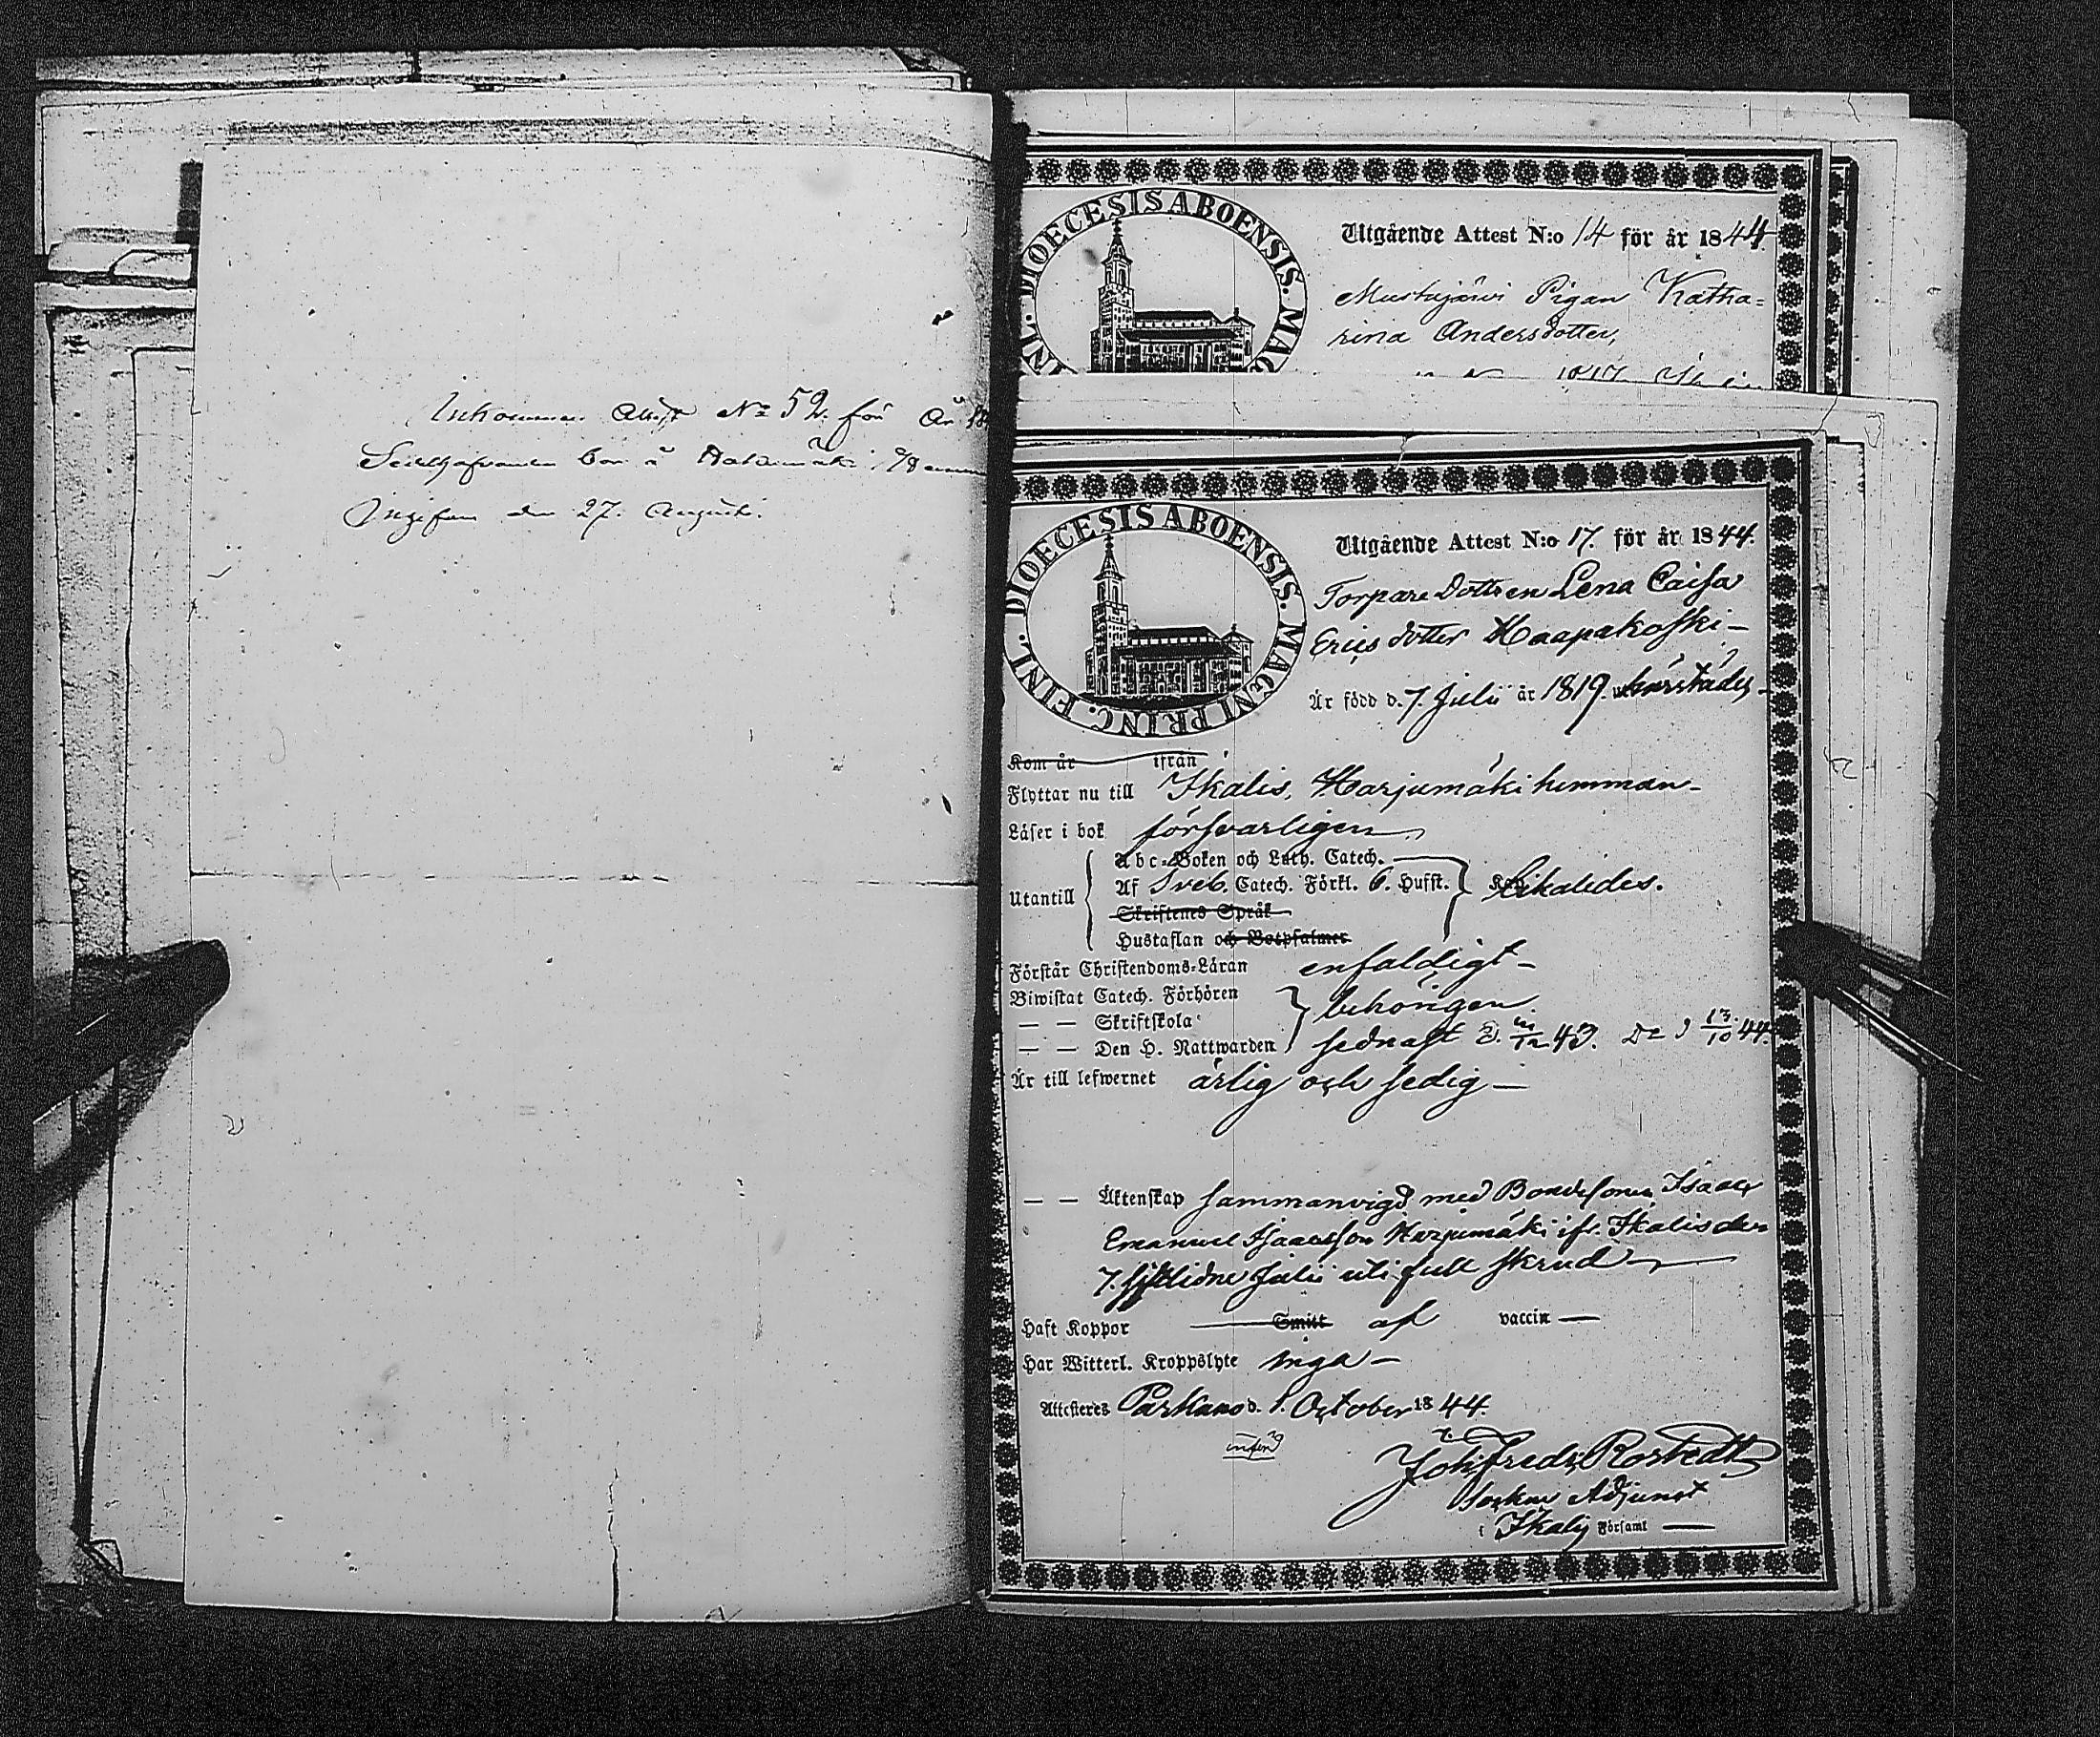 Inkommen Attest No 52. för År 18
Sedelhafvanden bor å
Ingifven den 27. Augusti.
DIOECESIS ABOENSIS. MAG
INL.
Utgående Attest N:o 14 för år 1844
Mustajärvi Pigan Katha=
rina Andersdotter,
DIOECESIS ABOENSIS. MAGNI PRINC. FINL.
Utgående Attest N:o 17. för år 1844.
Torpare Dottren Lena Caisa
Erics dotter Haapakoski –
Är född d. 7. Julii år 1819. härstädes –
Kom år ifrån
Flyttar nu till Ikalis, Harjumäki hemman –
Läser i bok försvarligen
Abc-Boken och Luth. Catech.
Utantill Af Sveb. Catech. Förkl. 6. Hufst. likaledes.
Skriftenes Språk
Hustaflan och Botpsalmer
Förstår Christendoms-Läran enfaldigt –
Biwistat Catech. Förhören
— — Skriftskola behörigen
— — Den H. Nattwarden sednast 43. 13/10 44.
Är till lefwernet ärlig och sedig —
— — Äktenskap sammanvigd med Bondesonen Isaac
Emanuel Isaacsson Harjumäki ifr. Ikalis den
7. sistlidne Julii uti full skrud
Haft Koppor Smitt af vaccin —
Har Witterl. Kroppslyte inga –
Attesteras Parkano d. 1. October 1844.
införd
Joh. Fredr. Rostedt
Sockne Adjunct
i Ikalis Församl —